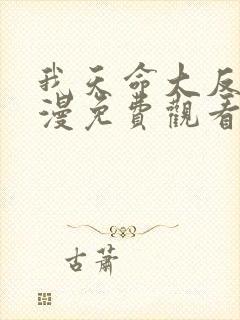 我天命大反
漫免費觀看
古蕭